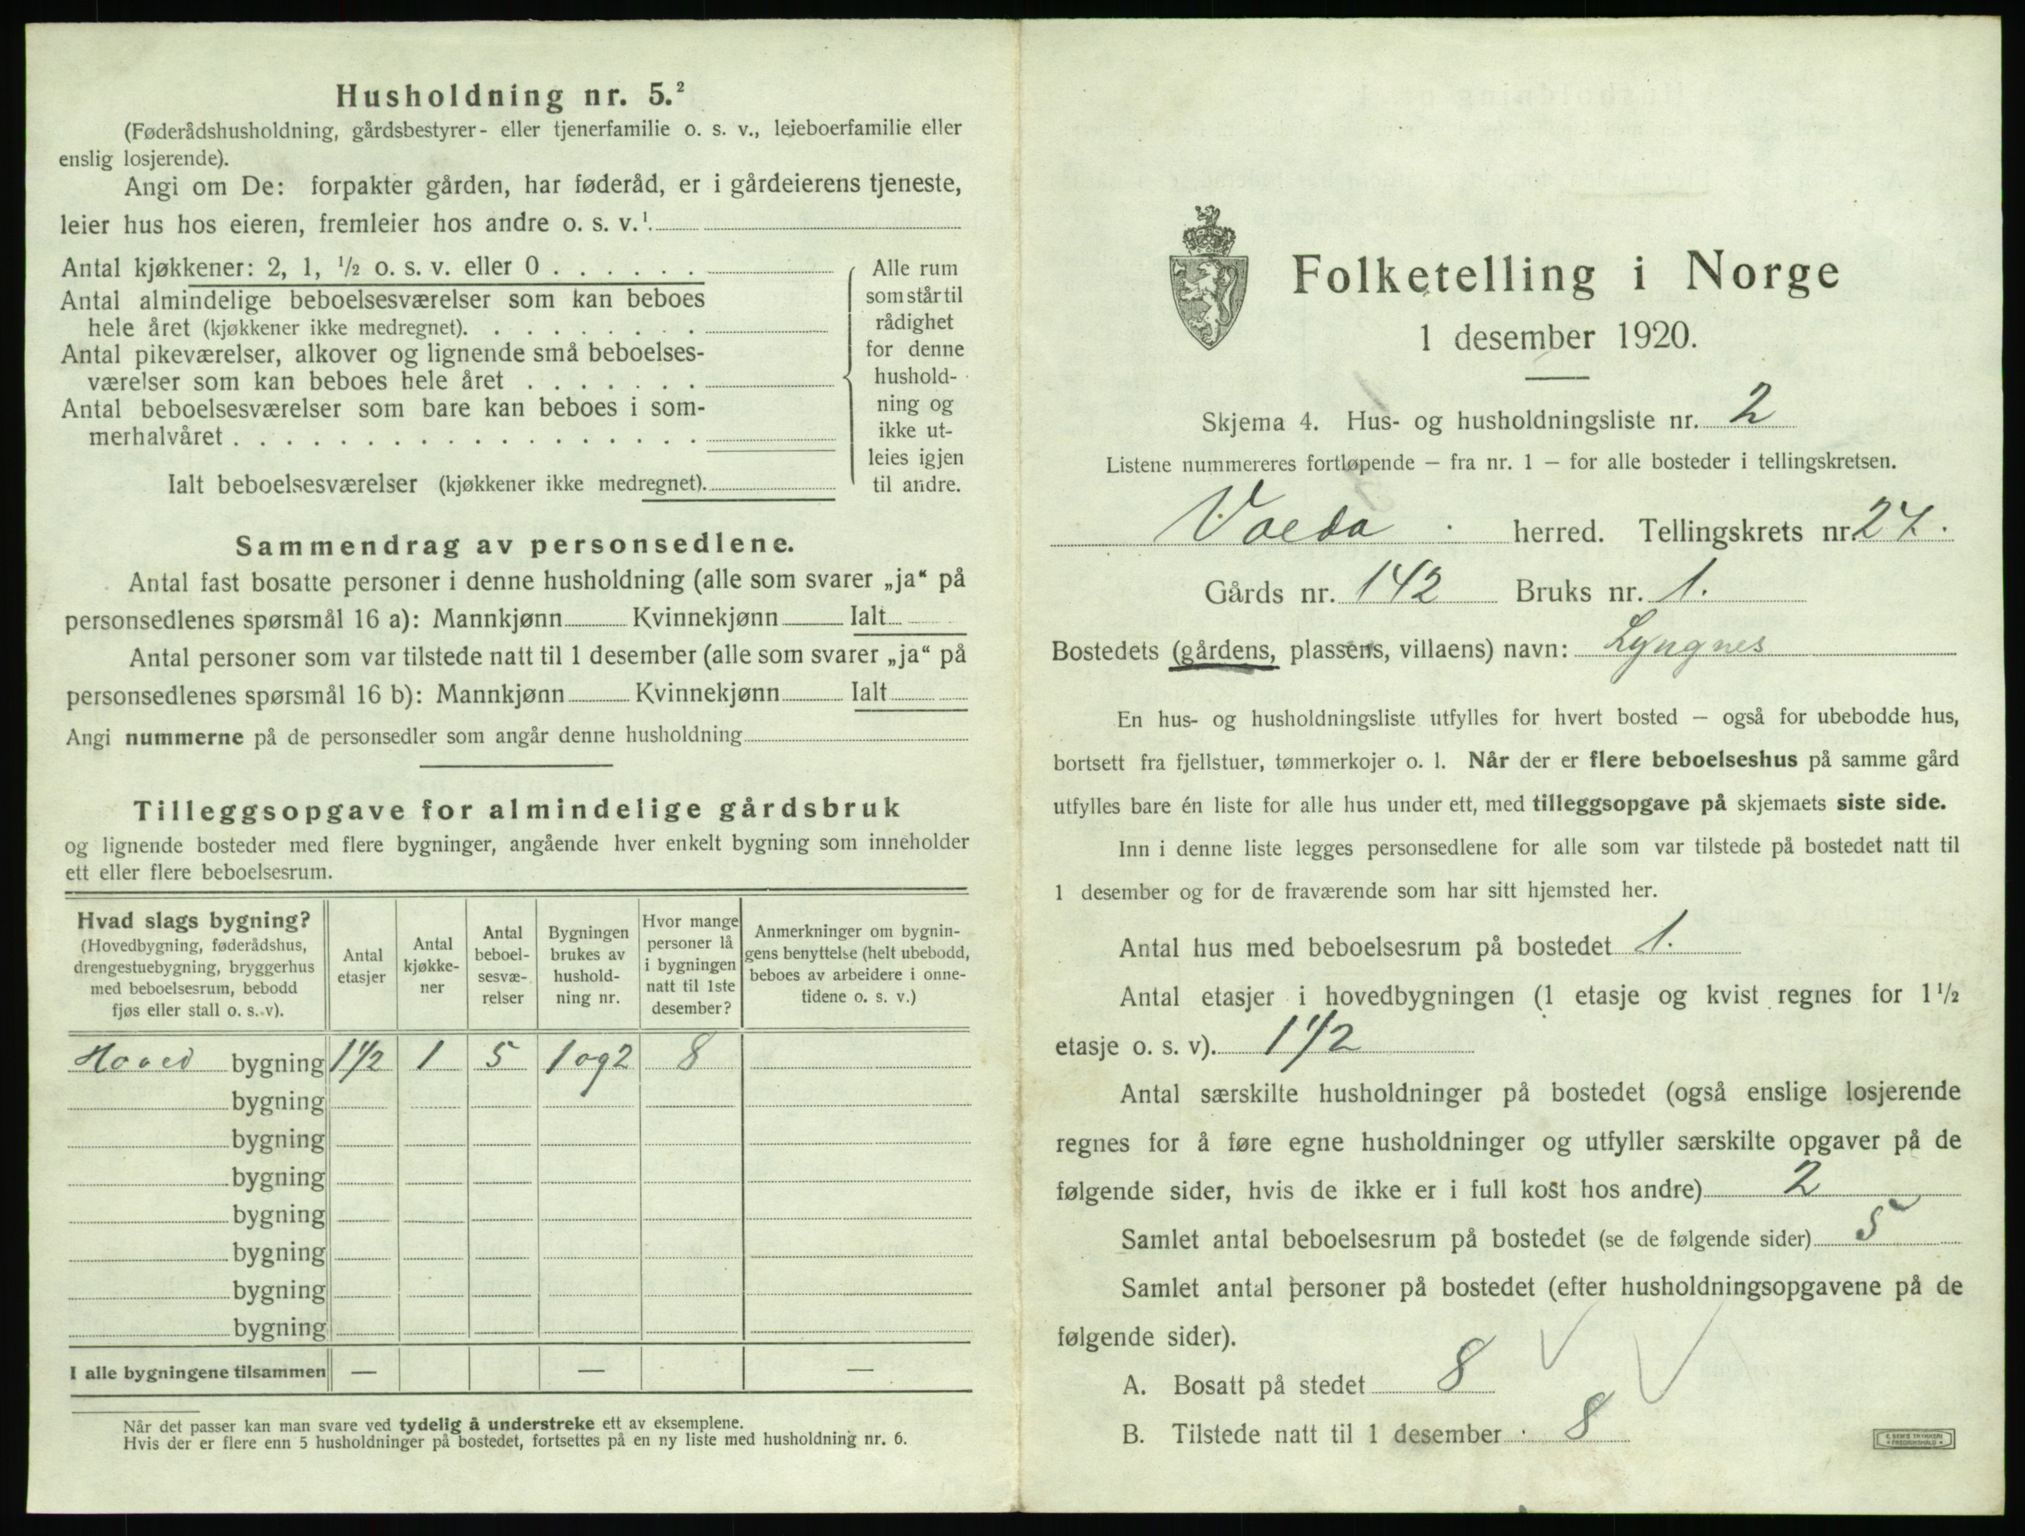 Husholdning nr. 5.²
(Føderådshusholdning, gårdsbestyrer- eller tjenerfamilie o. s. v., leieboerfamilie eller
enslig losjerende).
Angi om De: forpakter gården, har føderåd, er i gårdeierens tjeneste,
leier hus hos eieren, fremleier hos andre o. s. v.¹
Antal kjøkkener: 2, 1, ½ o. s. v. eller 0 . . . . . .
Antal almindelige beboelsesværelser som kan beboes
hele året (kjøkkener ikke medregnet). . . . . . . . .
Antal pikeværelser, alkover og lignende små beboelses-
værelser som kan beboes hele året . . . . . . .
Antal beboelsesværelser som bare kan beboes i som-
merhalvåret . . . . . . . . . . . . . . . . . .
Ialt beboelsesværelser (kjøkkener ikke medregnet).
Alle rum
som står til
rådighet
for denne
hushold-
ning og
ikke ut-
leies igjen
til andre.
Sammendrag av personsedlene.
Antal fast bosatte personer i denne husholdning (alle som svarer „ja“ på
personsedlenes spørsmål 16 a): Mannkjønn Kvinnekjønn Ialt
Antal personer som var tilstede natt til 1 desember (alle som svarer „ja“ på
personsedlenes spørsmål 16 b): Mannkjønn Kvinnekjønn Ialt
Angi nummerne på de personsedler som angår denne husholdning
Tilleggsopgave for almindelige gårdsbruk
og lignende bosteder med flere bygninger, angående hver enkelt bygning som inneholder
ett eller flere beboelsesrum.
Hvad slags bygning?
(Hovedbygning, føderådshus,
drengestuebygning, bryggerhus
med beboelsesrum, bebodd
fjøs eller stall o. s. v).
Antal
etasjer
Antal
kjøkke-
ner
Antal
beboel-
sesvæ-
relser
Bygningen
brukes av
hushold-
ning nr.
Hvor mange
personer lå
i bygningen
natt til 1ste
desember?
Anmerkninger om bygnin-
gens benyttelse (helt ubebodd,
beboes av arbeidere i onne-
tidene o. s. v.)
Hoved bygning 1½ 1 5 1 og 2 8
bygning
bygning
bygning
bygning
bygning
bygning
bygning
I alle bygningene tilsammen — — —
Når det passer kan man svare ved tydelig å understreke ett av eksemplene.
Hvis der er flere enn 5 husholdninger på bostedet, fortsettes på en ny liste med husholdning nr. 6.
Folketelling i Norge
1 desember 1920.
Skjema 4. Hus- og husholdningsliste nr. 2
Listene nummereres fortløpende – fra nr. 1 – for alle bosteder i tellingskretsen.
Volda herred. Tellingskrets nr. 27.
Gårds nr. 142 Bruks nr. 1.
Bostedets (gårdens, plassens, villaens) navn: Lyngnes
En hus- og husholdningsliste utfylles for hvert bosted – også for ubebodde hus,
bortsett fra fjellstuer, tømmerkojer o. l. Når der er flere beboelseshus på samme gård
utfylles bare én liste for alle hus under ett, med tilleggsopgave på skjemaets siste side.
Inn i denne liste legges personsedlene for alle som var tilstede på bostedet natt til
1 desember og for de fraværende som har sitt hjemsted her.
Antal hus med beboelsesrum på bostedet 1.
Antal etasjer i hovedbygningen (1 etasje og kvist regnes for 1½
etasje o. s. v). 1½
Antal særskilte husholdninger på bostedet (også enslige losjerende
regnes for å føre egne husholdninger og utfyller særskilte opgaver på de
følgende sider, hvis de ikke er i full kost hos andre) 2
Samlet antal beboelsesrum på bostedet (se de følgende sider) 5
Samlet antal personer på bostedet (efter husholdningsopgavene på de
følgende sider).
A. Bosatt på stedet 8
B. Tilstede natt til 1 desember 8